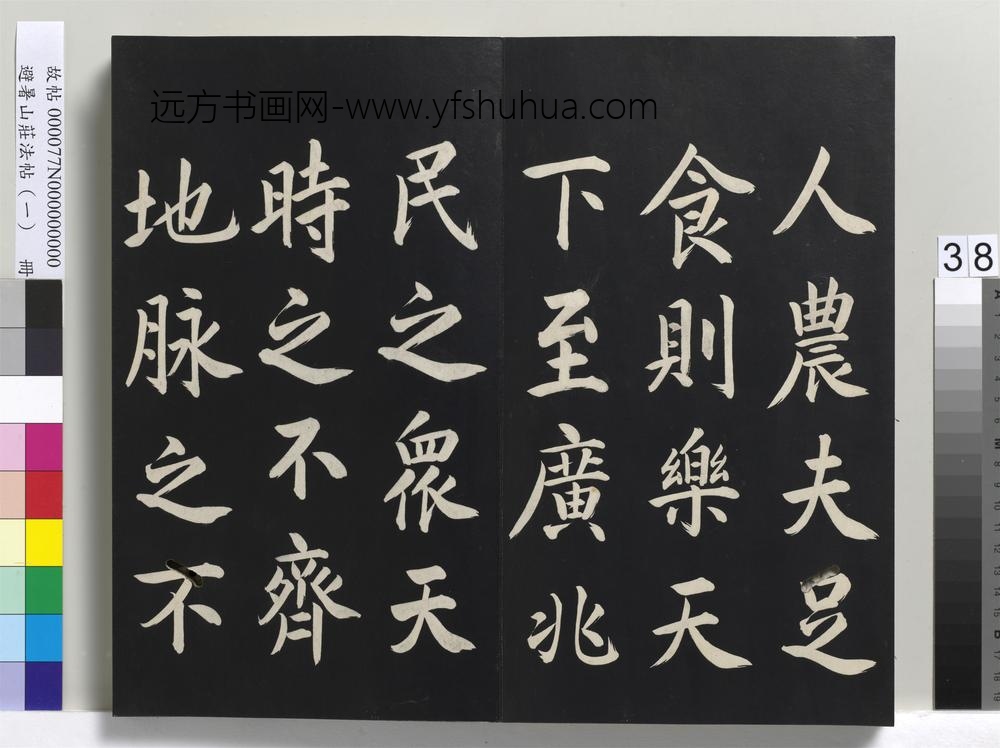 人農夫足
食則樂天
下至廣兆
民之眾天
時之不齊
地脉之不
远方书画网-www.yfshuhua.com
故帖 000077N000000000
避暑山莊法帖(一) 冊
38